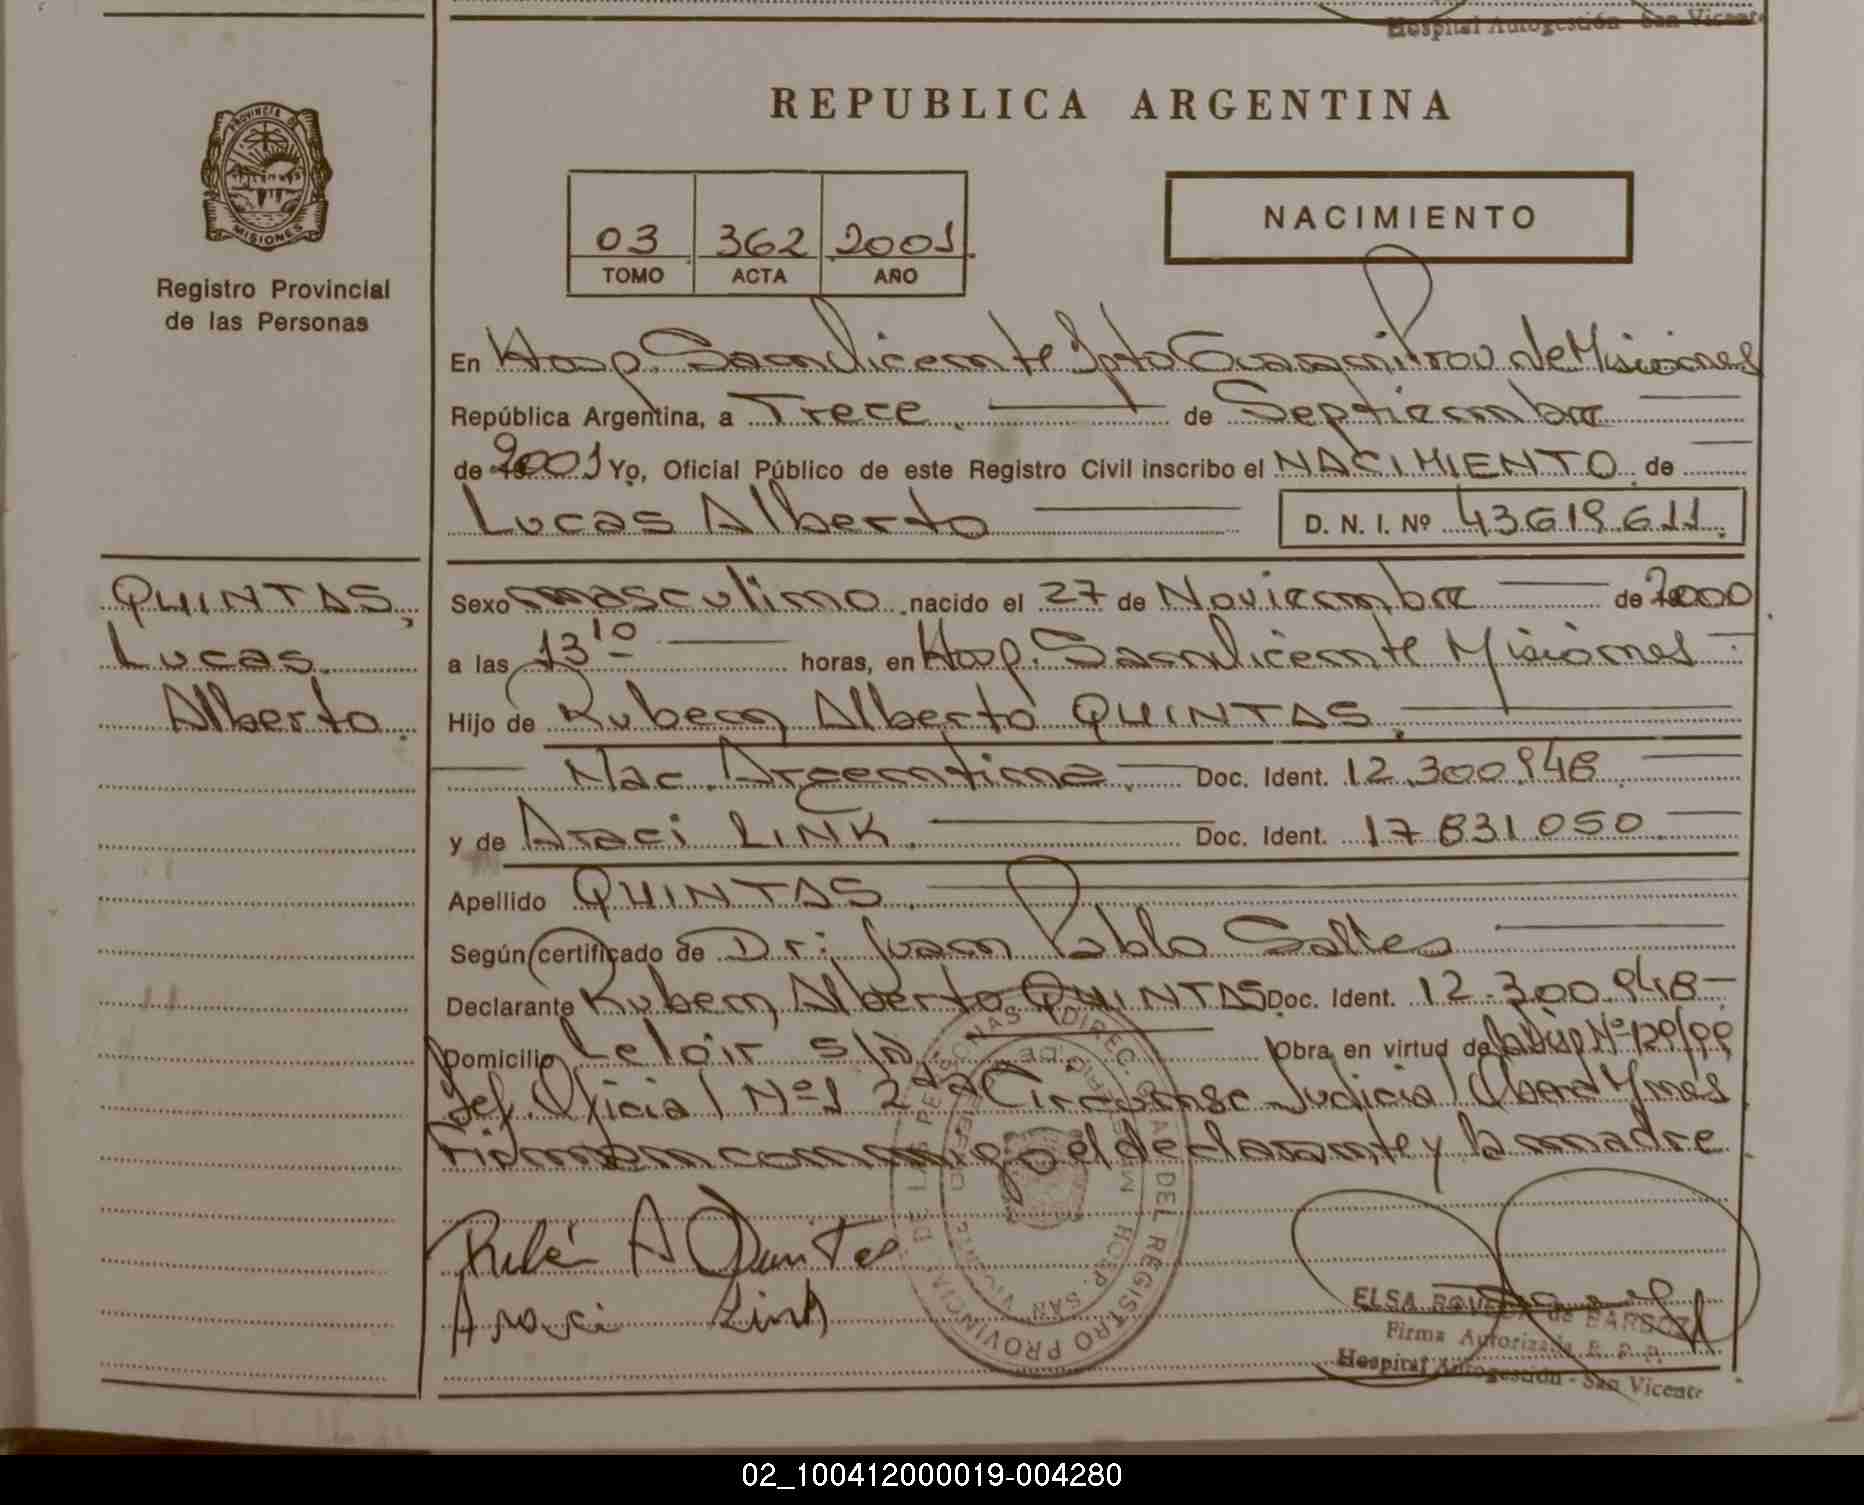 Hospital Autogestión - San Vicente
REPUBLICA ARGENTINA
PROVINCIA DE
MISIONES
Registro Provincial
de las Personas
03 362 2001
TOMO ACTA AÑO
NACIMIENTO
En Hosp. San Vicente Dpto Guarani Prov de Misiones
República Argentina, a Trece de Septiembre
de 2001 Yo, Oficial Público de este Registro Civil inscribo el NACIMIENTO de
Lucas Alberto D. N. I. Nº 43619611
QUINTAS,
Lucas
Alberto
Sexo masculino nacido el 27 de Noviembre de 2000
a las 13 10 horas, en Hosp. San Vicente Misiones
Hijo de Ruben Alberto QUINTAS
Nac. Argentina Doc. Ident. 12.300.948
y de Araci LINK Doc. Ident. 17 831 050
Apellido QUINTAS
Según certificado de Dr: Juan Pablo Saltes
Declarante Ruben Alberto QUINTAS Doc. Ident. 12.300.948
Domicilio Leloir s/n Obra en virtud de Nº
Def. Oficial Nº1 2da Circunsc Judicial Oberá Mnes
Firman conmigo el declarante y la madre
Rubén A Quintas
Araci Link
ELSA de BARBOZA
Firma Autorizada R. P. P.
Hospital Autogestión - San Vicente
DIREC. GRAL. DEL REGISTRO PROVINCIAL DE LAS PERSONAS
HOSP. SAN VICENTE
02_100412000019-004280